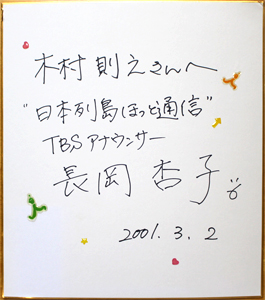 木村則えさんへ
"日本列島ほっと通信"
TBSアナウンサー
長岡杏子
2001.3.2